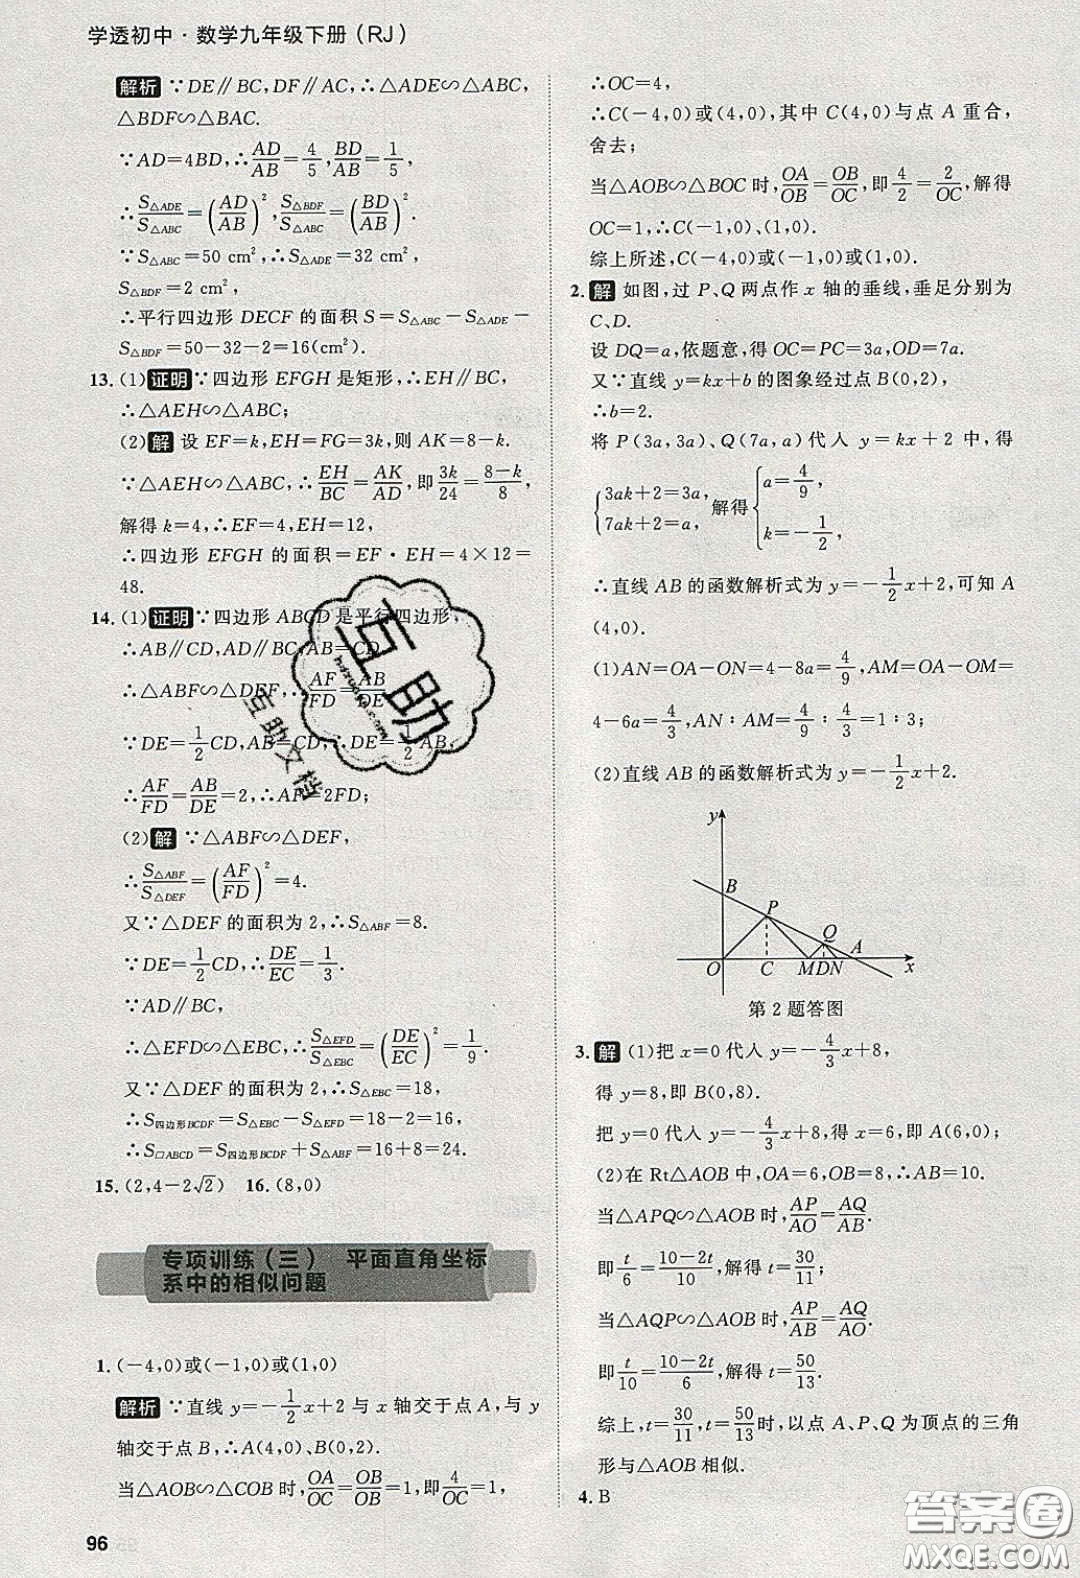 学透初中·数学九年级下册(RJ)
解析 ∵DE∥BC,DF∥AC,∴△ADE∽△ABC,
△BDF∽△BAC.
∵AD=4BD,∴AD/AB=4/5,BD/AB=1/5,
∴S△ADE/S△ABC=(AD/AB)²,S△BDF/S△ABC=(BD/AB)².
∵S△ABC=50 cm²,∴S△ADE=32 cm²,
S△BDF=2 cm²,
∴平行四边形 DECF 的面积 S=S△ABC-S△ADE-
S△BDF=50-32-2=16(cm²).
13.(1)证明 ∵四边形 EFGH 是矩形,∴EH∥BC,
∴△AEH∽△ABC;
(2)解 设 EF=k,EH=FG=3k,则 AK=8-k.
∵△AEH∽△ABC,∴EH/BC=AK/AD,即3k/24=(8-k)/8,
解得 k=4,∴EF=4,EH=12,
∴四边形 EFGH 的面积=EF·EH=4×12=
48.
14.(1)证明 ∵四边形 ABCD 是平行四边形,
∴AB∥CD,AD∥BC,AB=CD,
∴△ABF∽△DEF,∴AF/FD=AB/DE.
∵DE=1/2CD,AB=CD,∴DE=1/2AB,
∴AF/FD=AB/DE=2,∴AF=2FD;
(2)解 ∵△ABF∽△DEF,
∴S△ABF/S△DEF=(AF/FD)²=4.
又∵△DEF 的面积为 2,∴S△ABF=8.
∵DE=1/2CD,∴DE/EC=1/3.
∵AD∥BC,
∴△EFD∽△EBC,∴S△EFD/S△EBC=(DE/EC)²=1/9.
又∵△DEF 的面积为 2,∴S△EBC=18,
∴S四边形BCDF=S△EBC-S△EFD=18-2=16,
∴S□ABCD=S四边形BCDF+S△ABF=16+8=24.
15.(2,4-2√2) 16.(8,0)
专项训练(三) 平面直角坐标
系中的相似问题
1.(-4,0)或(-1,0)或(1,0)
解析 ∵直线 y=-1/2x+2 与 x 轴交于点 A,与 y
轴交于点 B,∴A(4,0)、B(0,2).
当△AOB∽△COB 时,OA/OC=OB/OB=1,即4/OC=1,
96
∴OC=4,
∴C(-4,0)或(4,0),其中 C(4,0)与点 A 重合,
舍去;
当△AOB∽△BOC 时,OA/OB=OB/OC,即4/2=2/OC,解得
OC=1,∴C(-1,0)、(1,0).
综上所述,C(-4,0)或(-1,0)或(1,0).
2.解 如图,过 P、Q 两点作 x 轴的垂线,垂足分别为
C、D.
设 DQ=a,依题意,得 OC=PC=3a,OD=7a.
又∵直线 y=kx+b 的图象经过点 B(0,2),
∴b=2.
将 P(3a,3a)、Q(7a,a)代入 y=kx+2 中,得
{3ak+2=3a, 7ak+2=a, 解得{a=4/9, k=-1/2,
∴直线 AB 的函数解析式为 y=-1/2x+2,可知 A
(4,0).
(1)AN=OA-ON=4-8a=4/9,AM=OA-OM=
4-6a=4/3,AN∶AM=4/9∶4/3=1∶3;
(2)直线 AB 的函数解析式为 y=-1/2x+2.
y
B
P
Q
A
O C MDN x
第 2 题答图
3.解 (1)把 x=0 代入 y=-4/3x+8,
得 y=8,即 B(0,8).
把 y=0 代入 y=-4/3x+8,得 x=6,即 A(6,0);
(2)在 Rt△AOB 中,OA=6,OB=8,∴AB=10.
当△APQ∽△AOB 时,AP/AO=AQ/AB.
即t/6=(10-2t)/10,解得 t=30/11;
当△AQP∽△AOB 时,AP/AB=AQ/AO.
即t/10=(10-2t)/6,解得 t=50/13.
综上,t=30/11,t=50/13时,以点 A、P、Q 为顶点的三角
形与△AOB 相似.
4.B
互助
互助文档
答案圈
MXQE.COM